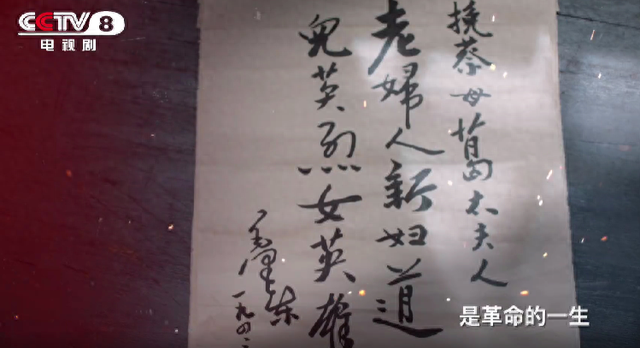 CCTV 8
电视剧
挽蔡母葛太夫人
老婦人新妇道
兒英烈女英雄
毛澤东
一九四
是革命的一生